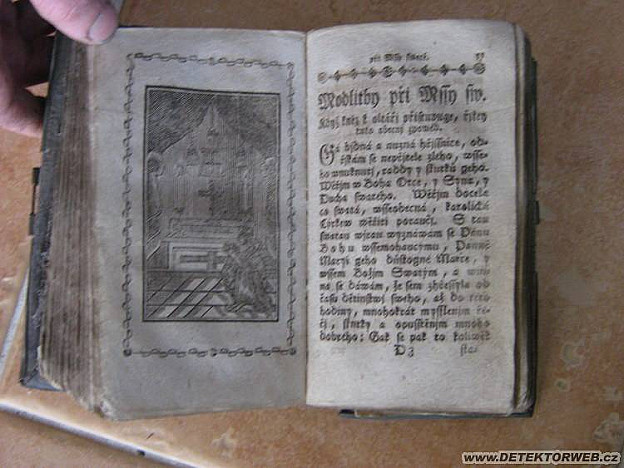 při Mssy swaté. 53
Modlitby při Mssy sw.
Když kněz k oltáři přistupuge, řjkey
tuto obecný zpowěd.
Gá bjdná a nuzná hřjssnice, od-
řjkám se nepřjtele zlého, wsse-
ho wnuknutj, raddy y skutků geho.
Wěřjm w Boha Otce, y Syna, y
Ducha swatého. Wěřjm docela
co swatá, wsseobecná, katolická
Cýrkew wěřiti poraučj. S tau
swatau wjrau wyznáwám se Pánu
Bohu wssemohaucýmu, Panně
Maryi geho důstogné Matce, y
wssem Božjm Swatým, a win-
na se dáwám, že sem zhřessyla od
času dětinstwj swého, až do této
hodiny, mnohokrát myssljenjm ře-
čj, skutky a opusstěnjm mnoho
dobrého: Gak se pak to koliwěk
D 3 stas
www.DETEKTORWEB.cz